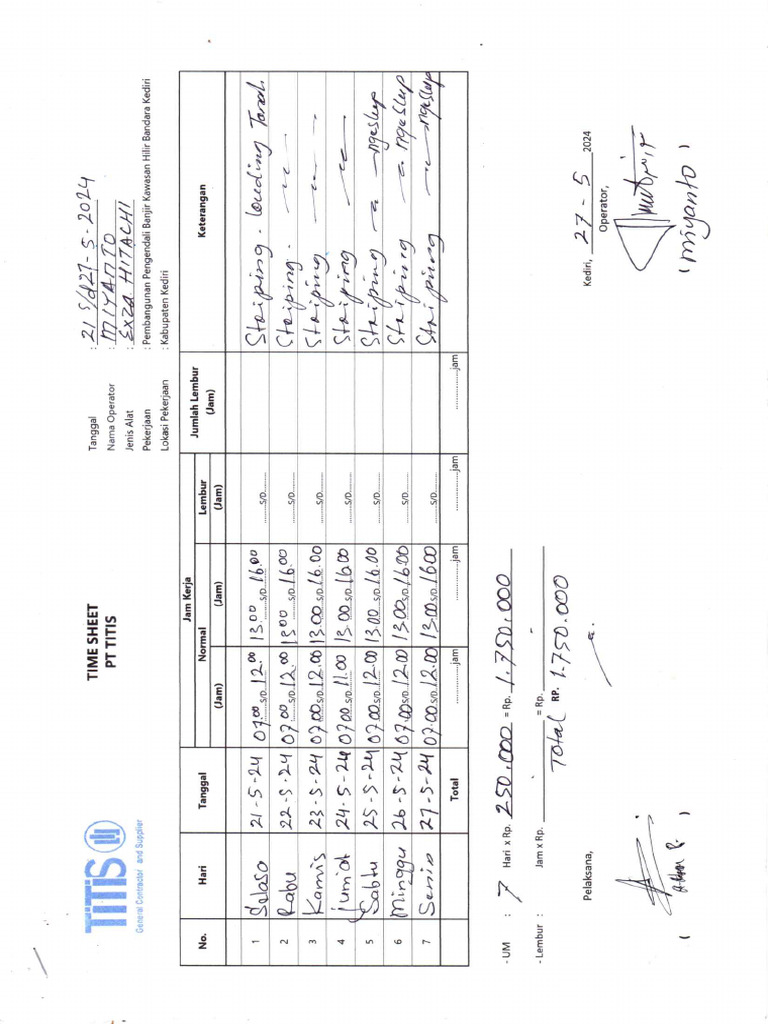 TITIS
General Contractor and Supplier
TIME SHEET
PT TITIS
Tanggal : 21 S/d 27-5-2024
Nama Operator : MIYANTO
Jenis Alat : Exza HITACHI
Pekerjaan : Pembangunan Pengendali Banjir Kawasan Hilir Bandara Kediri
Lokasi Pekerjaan : Kabupaten Kediri
No. Hari Tanggal Jam Kerja Jumlah Lembur (Jam) Keterangan
Normal Lembur
(Jam) (Jam) (Jam)
1 Selaso 21-5-24 07.00 S/D. 12.00 13.00 S/D. 16.00 ..........S/D.......... Straiping - Louding Tanah
2 Rabu 22-5-24 07.00 S/D. 12.00 13.00 S/D. 16.00 ..........S/D.......... Straiping -
3 Kamis 23-5-24 07.00 S/D. 12.00 13.00 S/D. 16.00 ..........S/D.......... Straiping
4 Jum'at 24-5-24 07.00 S/D. 11.00 13.00 S/D. 16.00 ..........S/D.......... Straiping
5 Sabtu 25-5-24 07.00 S/D. 12.00 13.00 S/D. 16.00 ..........S/D.......... Straiping ngeslep
6 Minggu 26-5-24 07.00 S/D. 12.00 13.00 S/D. 16.00 ..........S/D.......... Straiping ngeslep
7 Senin 27-5-24 07.00 S/D. 12.00 13.00 S/D. 16.00 ..........S/D.......... Straiping ngeslep
Total ................jam ................jam ................jam ................jam
- UM : 7 Hari x Rp. 250.000 = Rp. 1.750.000
- Lembur : Jam x Rp. = Rp.
Total RP. 1.750.000
Kediri, 27-5 2024
Pelaksana, Operator,
( ) (miyanto)